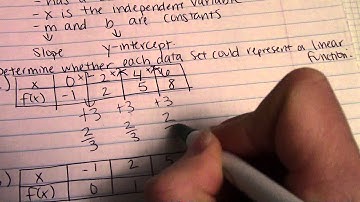 - x is the independent variable
- m and b are constants
Slope y-intercept
Determine whether each data set could represent a linear
function.
x 0 2 4 6
f(x) -1 2 5 8
+3 +3 +3
2/3 2/3 2
x -1 2 5
f(x) 0 1